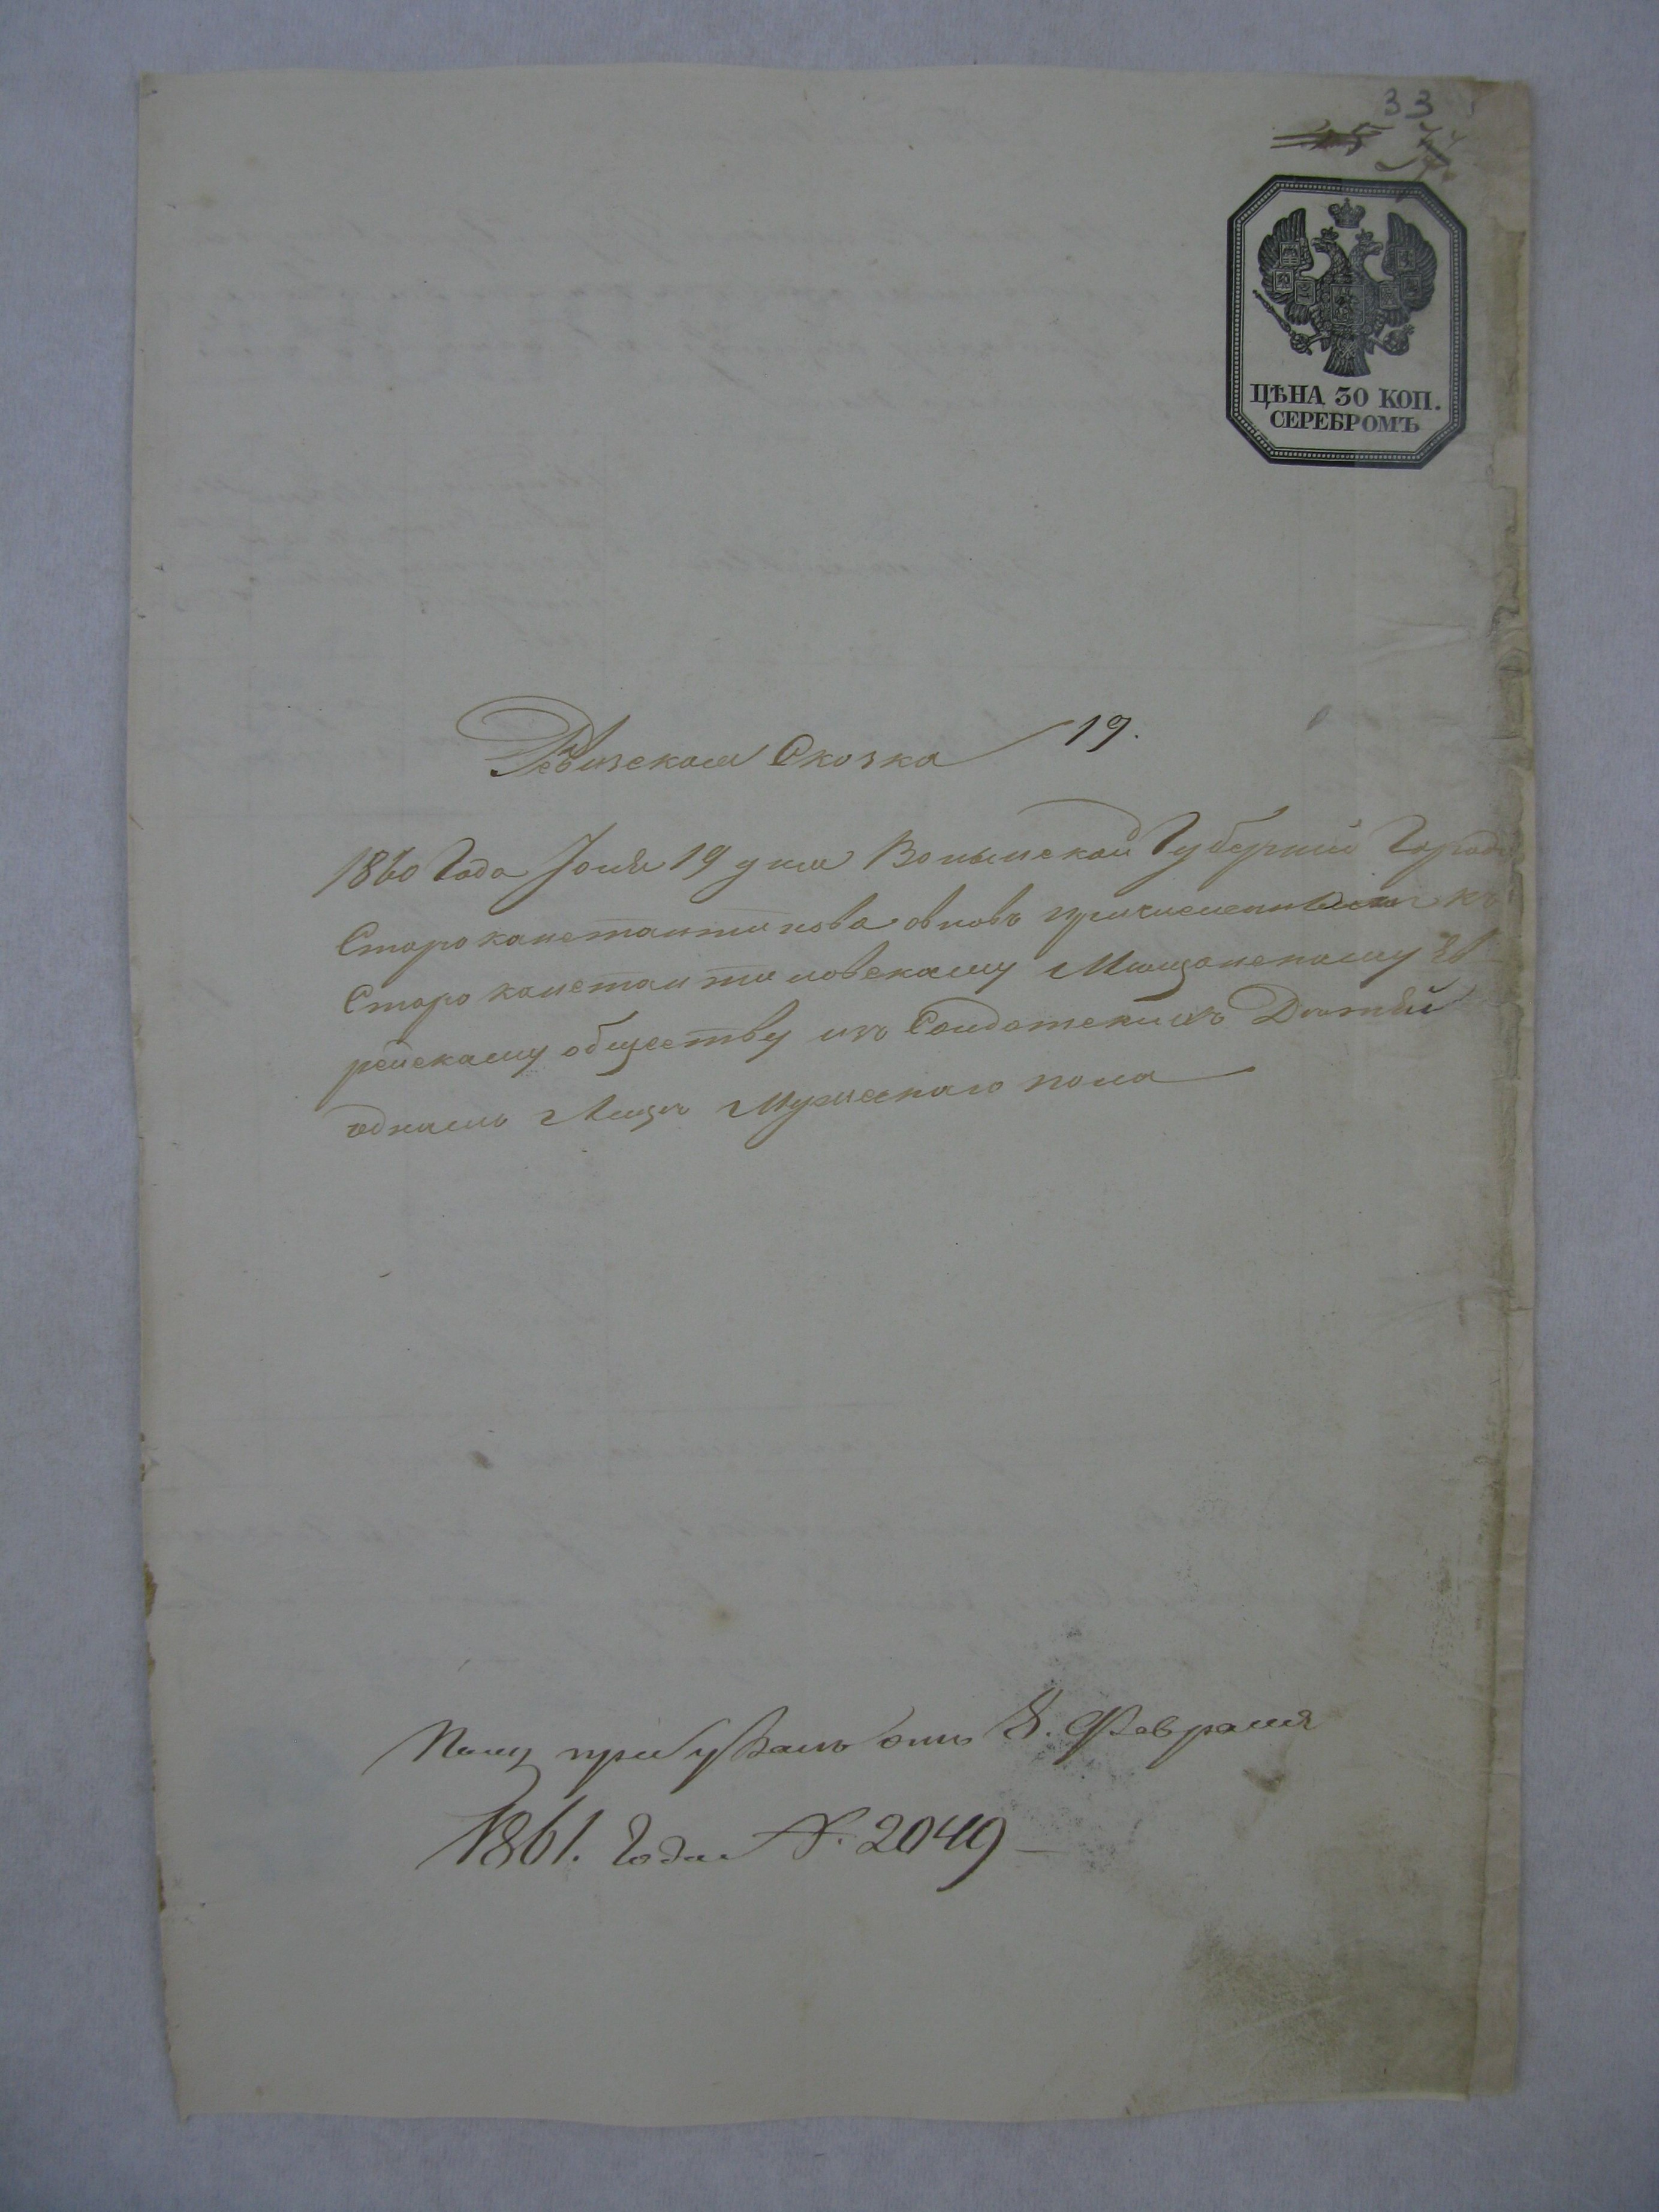 33
ЦѢНА 30 КОП.
СЕРЕБРОМЪ
Ревизская Сказка 19.
1860 Года Іюля 19 дня Волынской Губерніи Города
Староконстантинова вновь причисленными къ
Староконстантиновскому Мещанскому Ев
рейскому обществу изъ Солдатскихъ Дѣтей
однаго Лица Мужескаго пола
При указѣ отъ 8. Февраля
1861. Года №. 2049